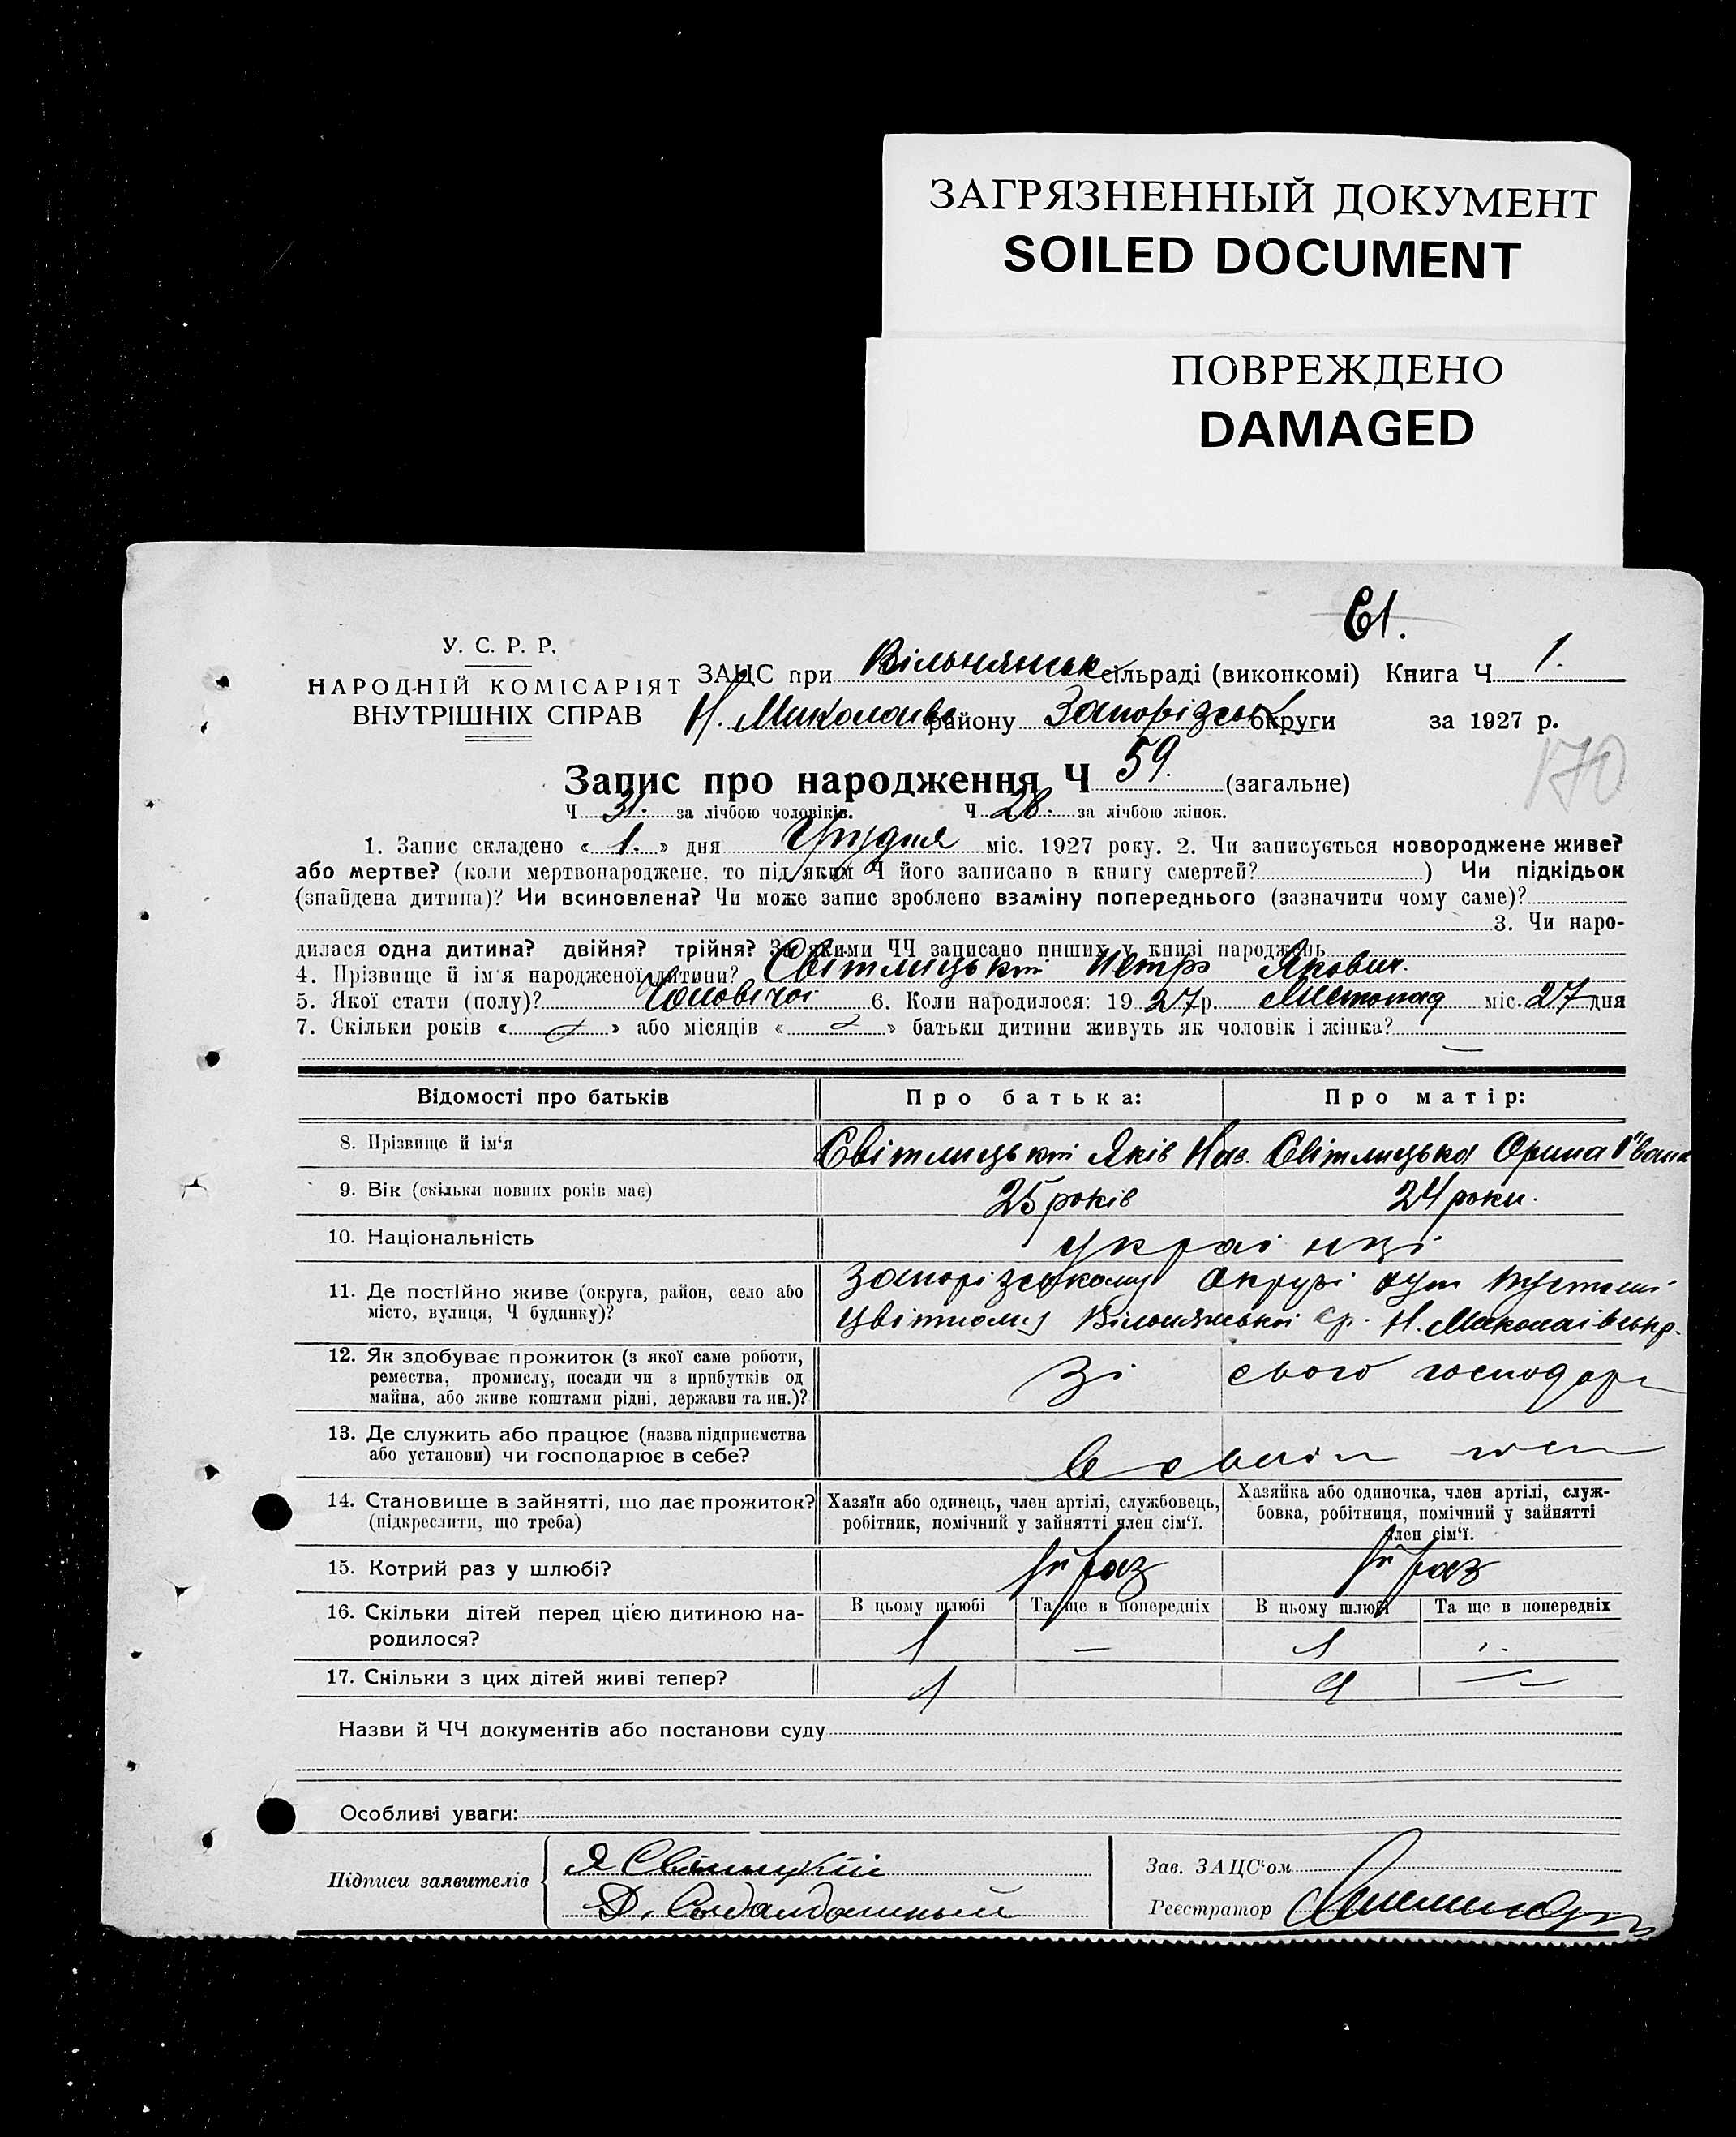 ЗАГРЯЗНЕННЫЙ ДОКУМЕНТ
SOILED DOCUMENT
ПОВРЕЖДЕНО
DAMAGED
61.
У. С. Р. Р.
НАРОДНІЙ КОМІСАРІЯТ
ВНУТРІШНІХ СПРАВ
ЗАЦС при Вільнянськ сільраді (виконкомі) Книга Ч 1.
Н. Миколаїв району Запорізськ округи за 1927 р.
170
Запис про народження Ч 59. (загальне)
Ч 31. за лічбою чоловіків. Ч 28. за лічбою жінок.
1. Запис складено « 1. » дня Грудня міс. 1927 року. 2. Чи записується новороджене живе?
або мертве? (коли мертвонароджене, то під яким Ч його записано в книгу смертей? ) Чи підкідьок
(знайдена дитина)? Чи всиновлена? Чи може запис зроблено взаміну попереднього (зазначити чому саме)?
3. Чи наро-
дилася одна дитина? двійня? трійня? За якими ЧЧ записано инших у книзі народжень
4. Прізвище й ім'я народженої дитини? Світлицький Петро Якович.
5. Якої стати (полу)? Чоловічої 6. Коли народилося: 1927 р. Листопад міс. 27 дня
7. Скільки років « » або місяців « » батьки дитини живуть як чоловік і жінка?
Відомості про батьків Про батька: Про матір:
8. Прізвище й ім'я Світлицький Яків Наз. Світлицька Орина Іван
9. Вік (скільки повних років має) 25 років 24 роки.
10. Національність українці
11. Де постійно живе (округа, район, село або
місто, вулиця, Ч будинку)?
Запорізському Окрузі хут
Цвітному Вільнянської ср. Н. Миколаівськ р.
12. Як здобуває прожиток (з якої саме роботи,
ремества, промислу, посади чи з прибутків од
майна, або живе коштами рідні, держави та ин.)?
Зі свого господар
13. Де служить або працює (назва підприємства
або установи) чи господарює в себе?
В своїм
14. Становище в зайнятті, що дає прожиток?
(підкреслити, що треба)
Хазяїн або одинець, член артілі, службовець,
робітник, помічний у зайнятті член сім'ї.
Хазяйка або одиночка, член артілі, служ-
бовка, робітниця, помічний у зайнятті
член сім'ї.
15. Котрий раз у шлюбі? 1й раз 1й раз
16. Скільки дітей перед цією дитиною на-
родилося?
В цьому шлюбі Та ще в попередніх В цьому шлюбі Та ще в попередніх
1 — 1
17. Скільки з цих дітей живі тепер? 1 —
Назви й ЧЧ документів або постанови суду
Особливі уваги:
Підписи заявителів
Я Світлицкій
Д.
Зав. ЗАЦС'ом
Реєстратор